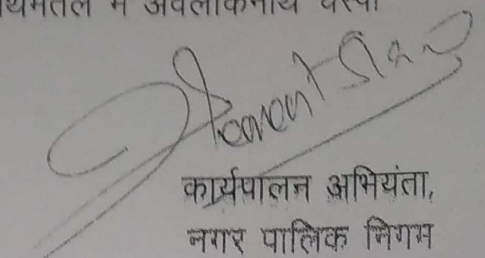 में अवलोकनार्थ चस्पा
कार्यपालन अभियंता,
नगर पालिक निगम